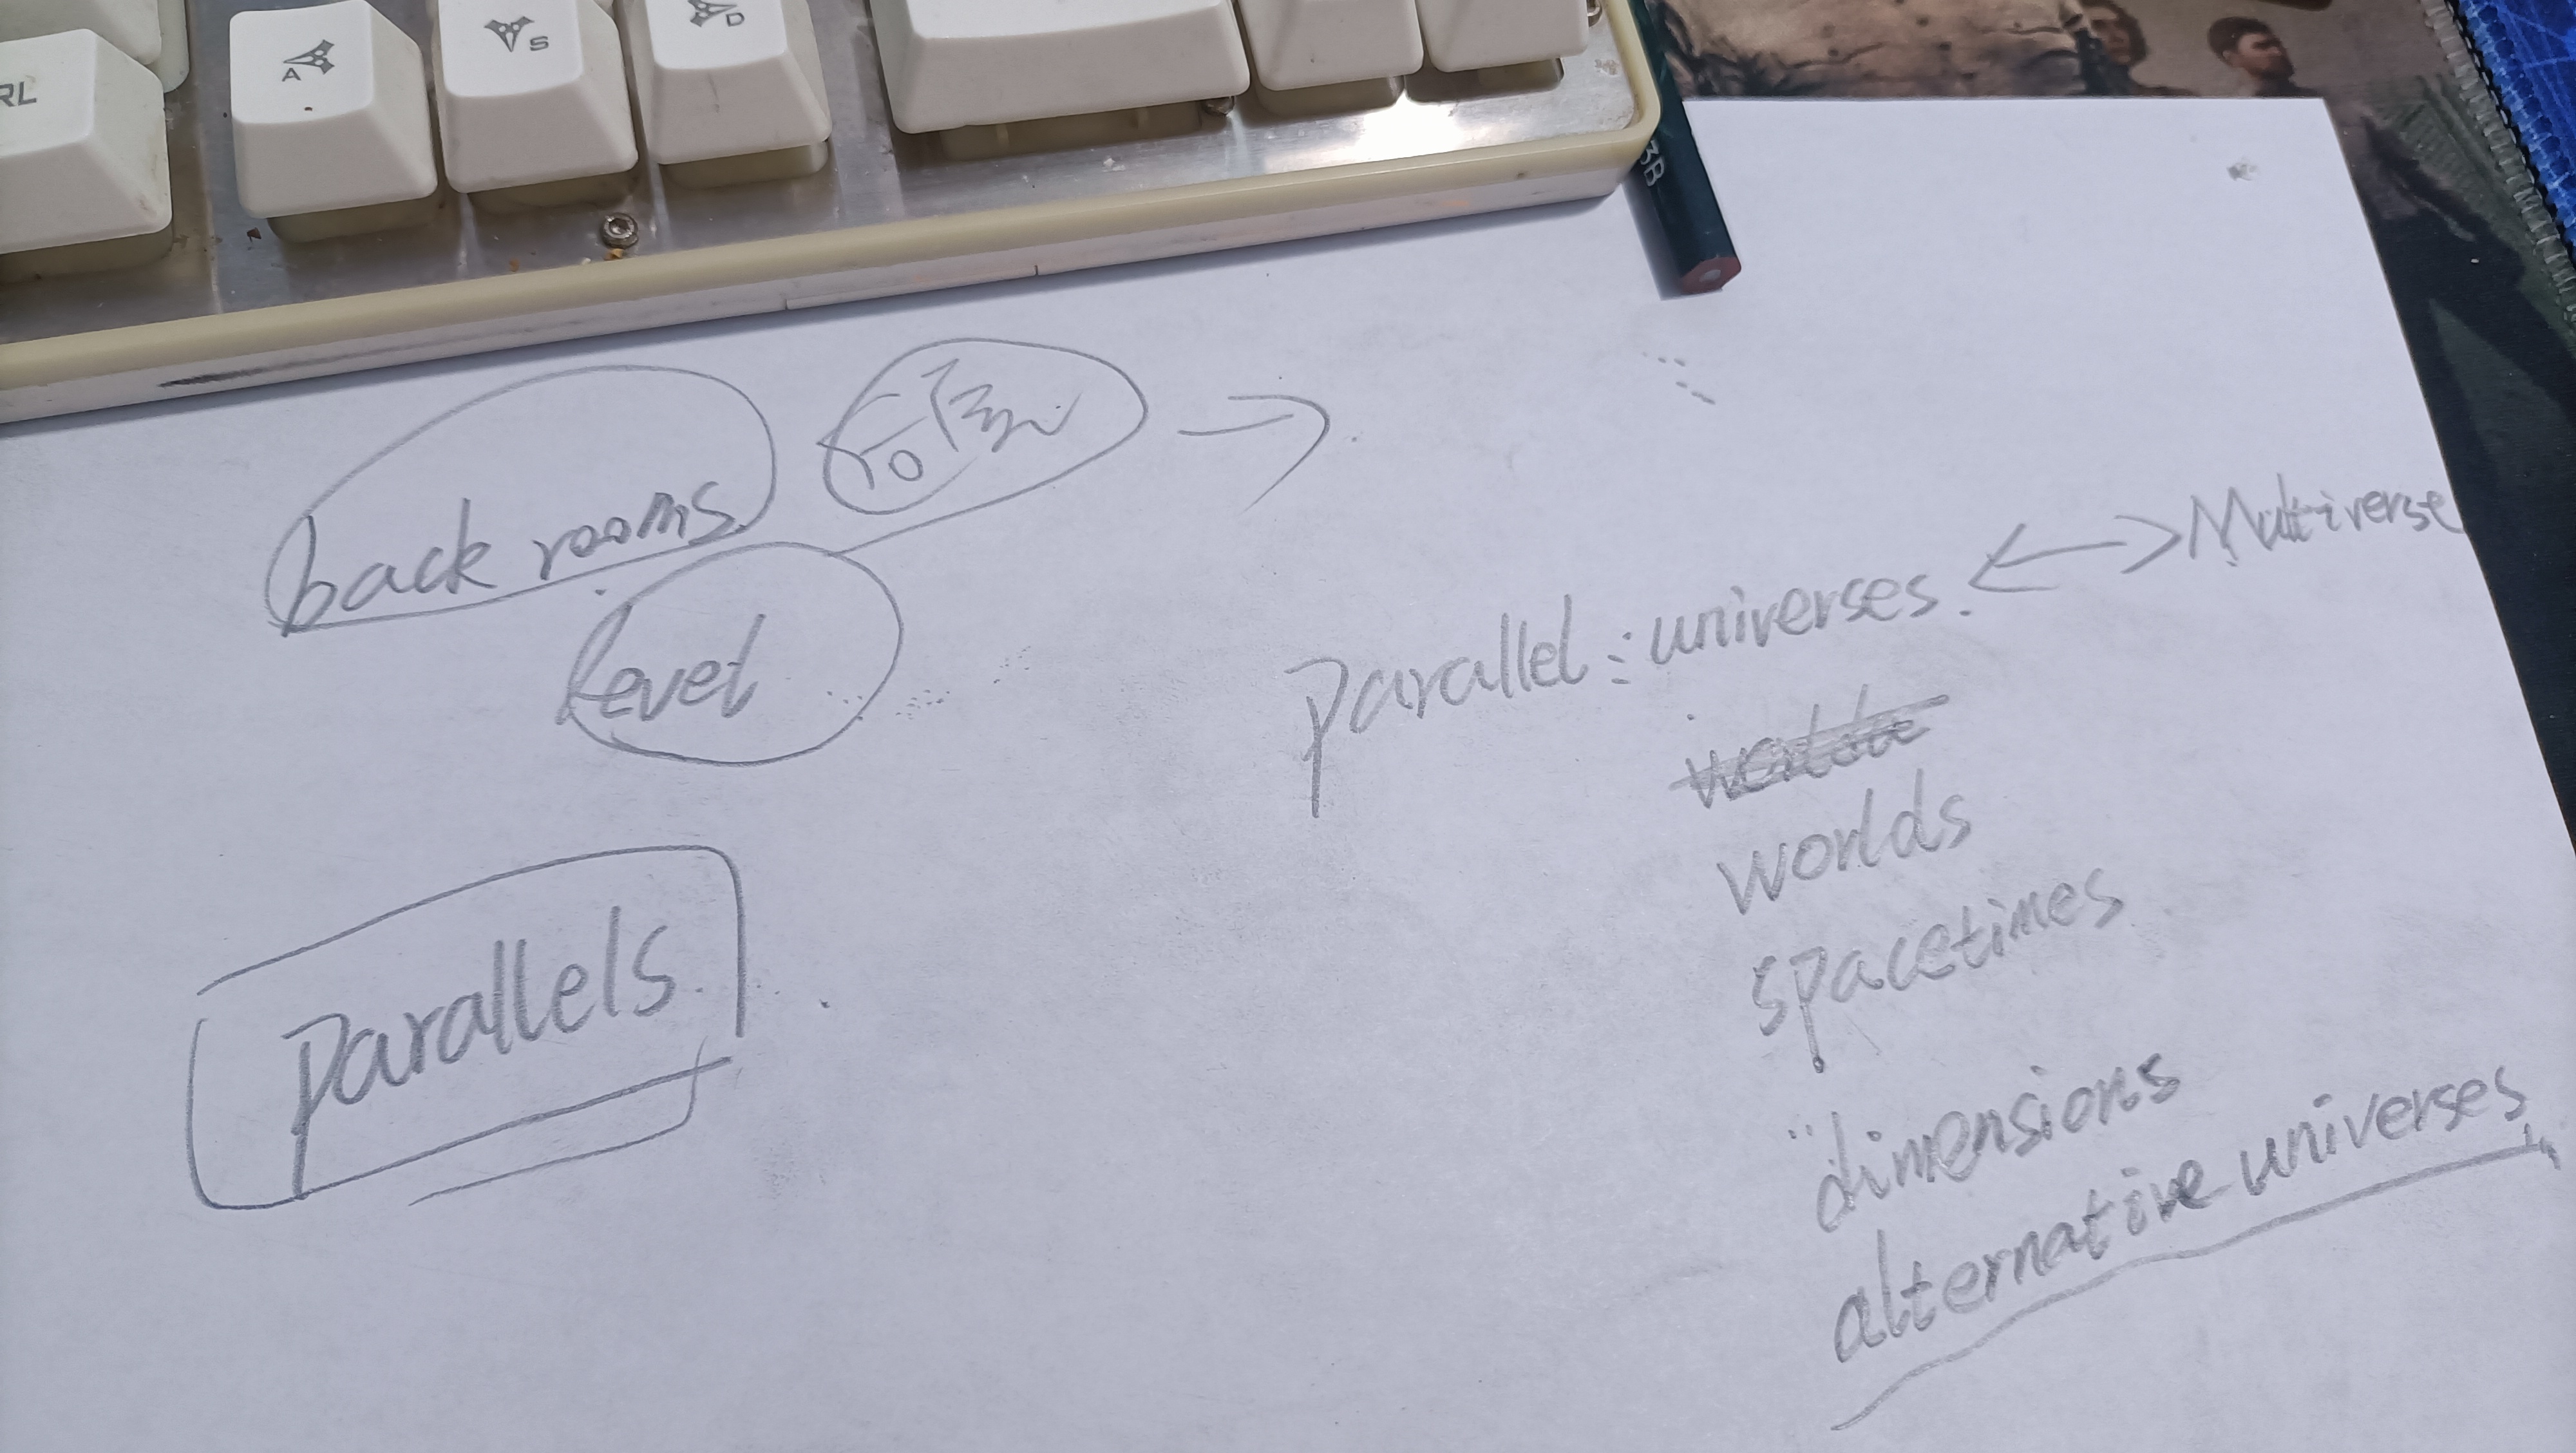 RL
A
S
D
3B
back rooms
后层
level
parallel : universes. ↔ Multiverse
worlds
spacetimes
dimensions
alternative universes
parallels